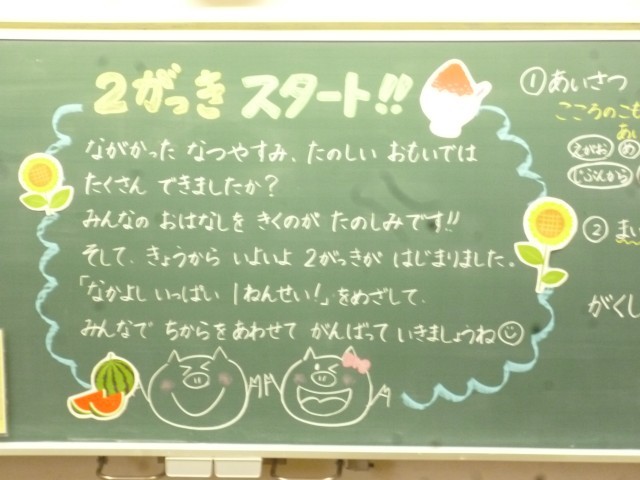 2がっき スタート!!
ながかった なつやすみ、たのしい おもいでは
たくさん できましたか?
みんなの おはなしを きくのが たのしみです!!
そして、きょうから いよいよ 2がっきが はじまりました。
「なかよし いっぱい 1ねんせい!」をめざして、
みんなで ちからをあわせて がんばって いきましょうね
① あいさつ
こころのこも
あ
えがお め
じぶんから
② まい
がくし